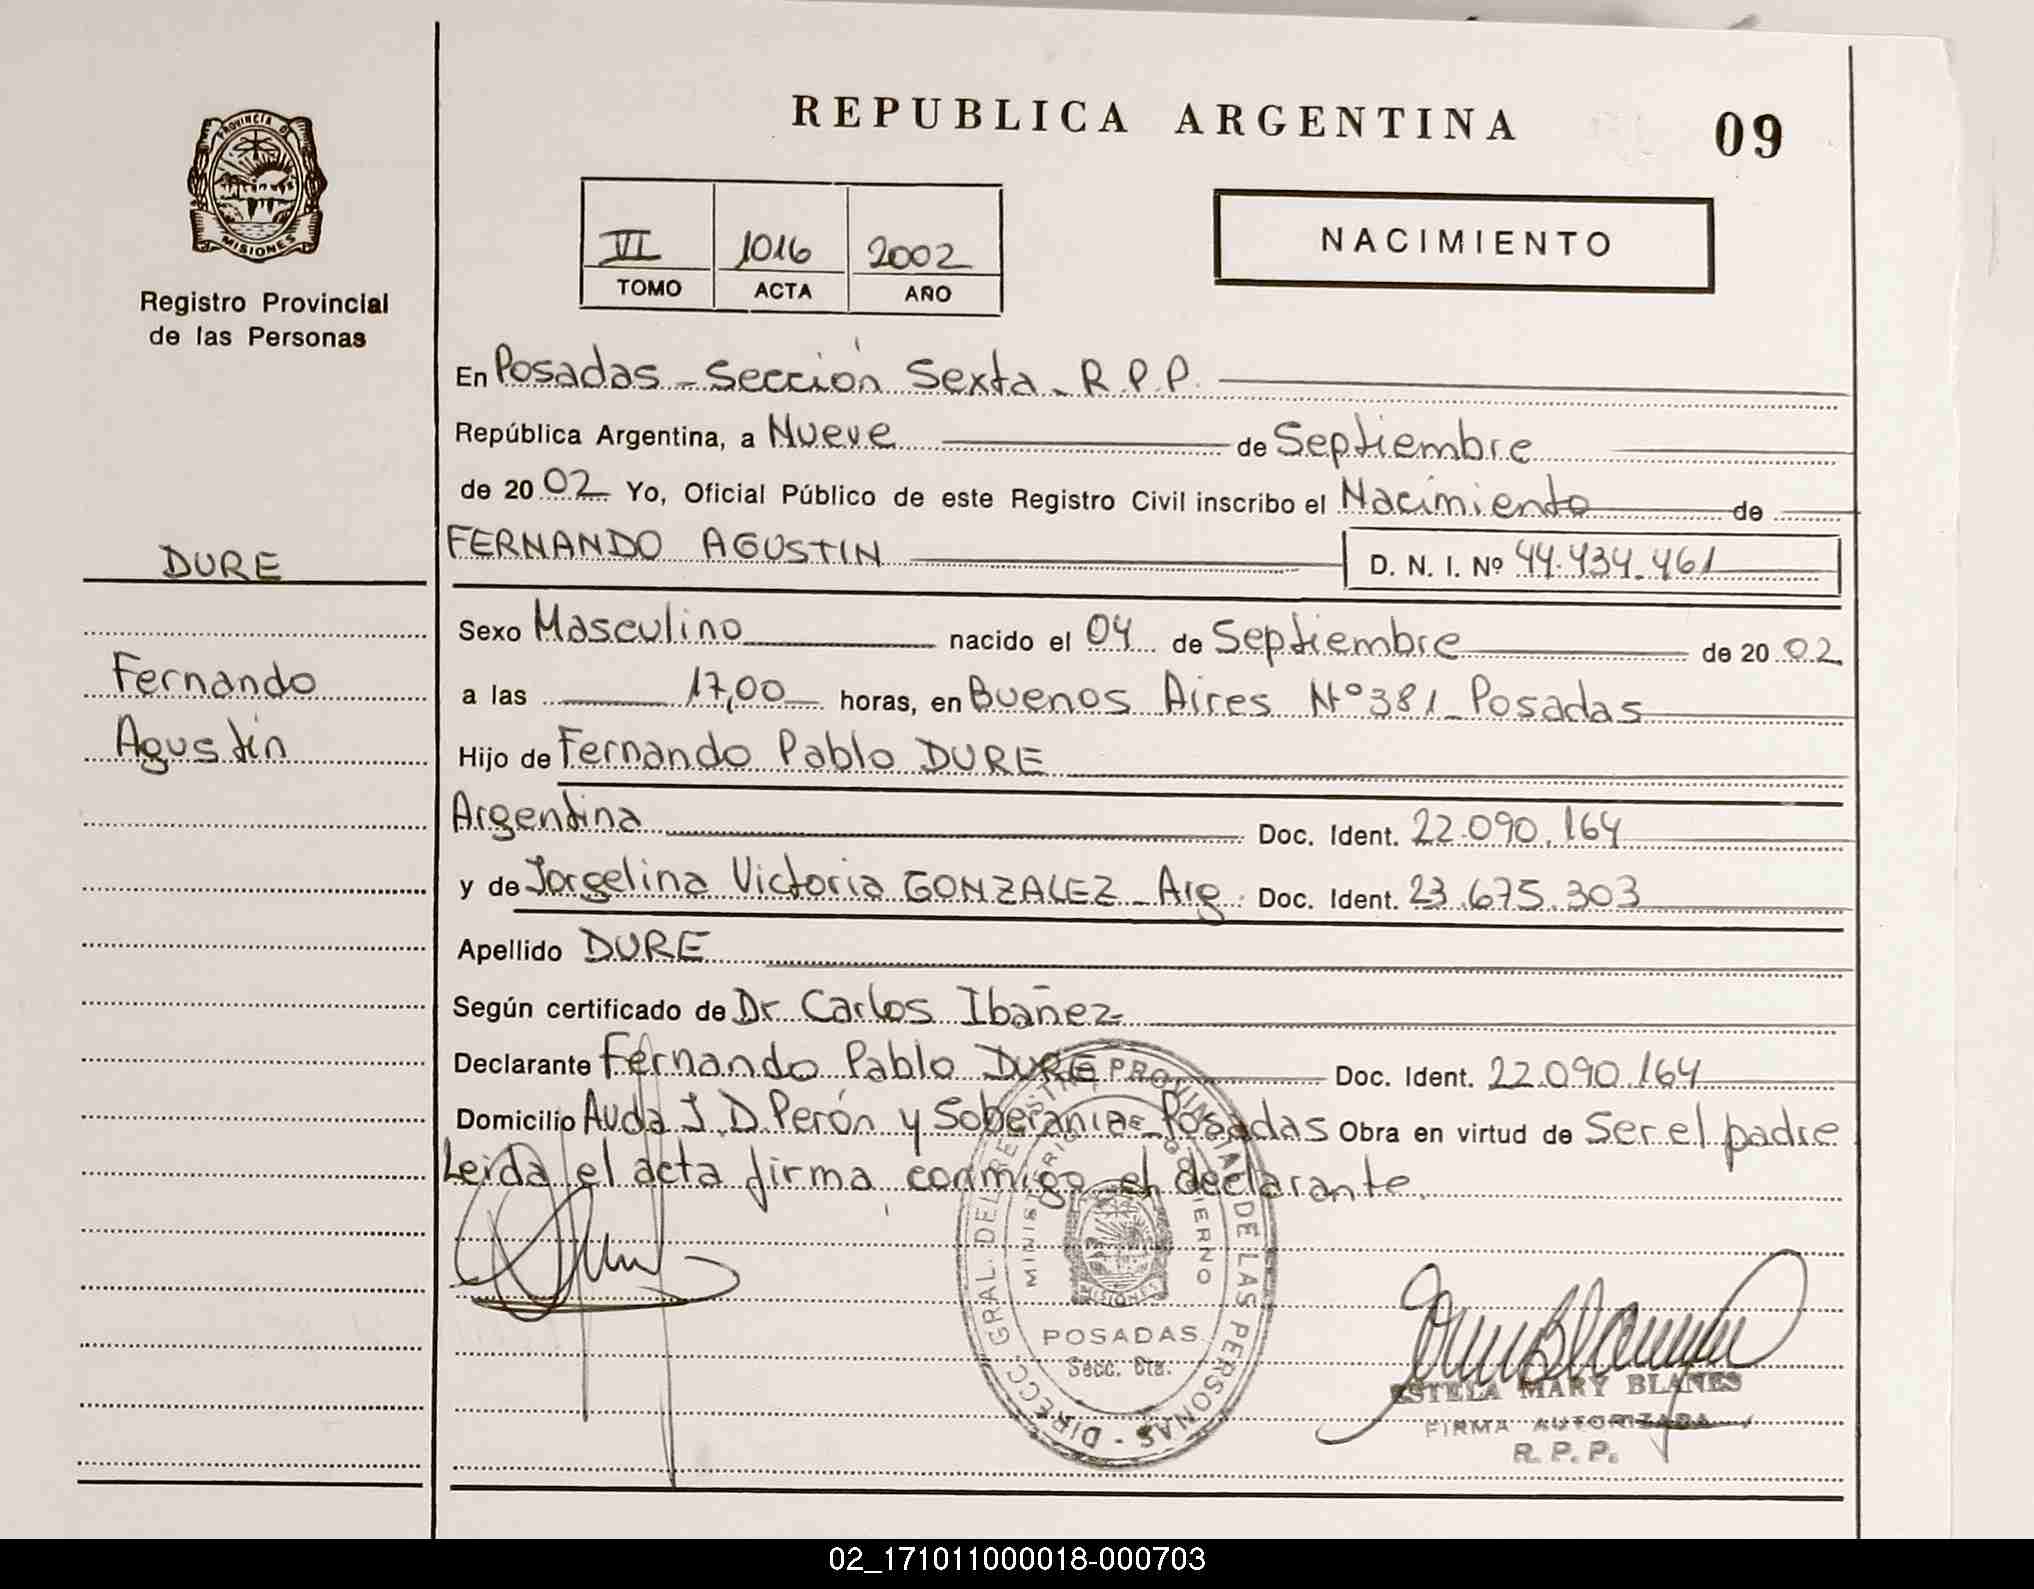 REPUBLICA ARGENTINA
09
PROVINCIA DE
MISIONES
Registro Provincial
de las Personas
VI 1016 2002
TOMO ACTA AÑO
NACIMIENTO
En Posadas - Sección Sexta - R.P.P.
República Argentina, a Nueve de Septiembre
de 2002 Yo, Oficial Público de este Registro Civil inscribo el Nacimiento de
FERNANDO AGUSTIN D. N. I. Nº 44.434.461
DURE
Fernando
Agustín
Sexo Masculino nacido el 04 de Septiembre de 2002
a las 17,00 horas, en Buenos Aires Nº 381 - Posadas
Hijo de Fernando Pablo DURE
Argentina Doc. Ident. 22.090.164
y de Jorgelina Victoria GONZALEZ - Arg. Doc. Ident. 23.675.303
Apellido DURE
Según certificado de Dr. Carlos Ibañez
Declarante Fernando Pablo DURE Doc. Ident. 22.090.164
Domicilio Avda J. D. Perón y Soberania - Posadas Obra en virtud de Ser el padre
Leida el acta firma conmigo el declarante.
DIRECC. GRAL. DEL REGISTRO PROVINCIAL DE LAS PERSONAS
MINISTERIO DE GOBIERNO
MISIONES
POSADAS
Secc. 6ta.
ESTELA MARY BLANES
FIRMA AUTORIZADA
R. P. P.
02_171011000018-000703